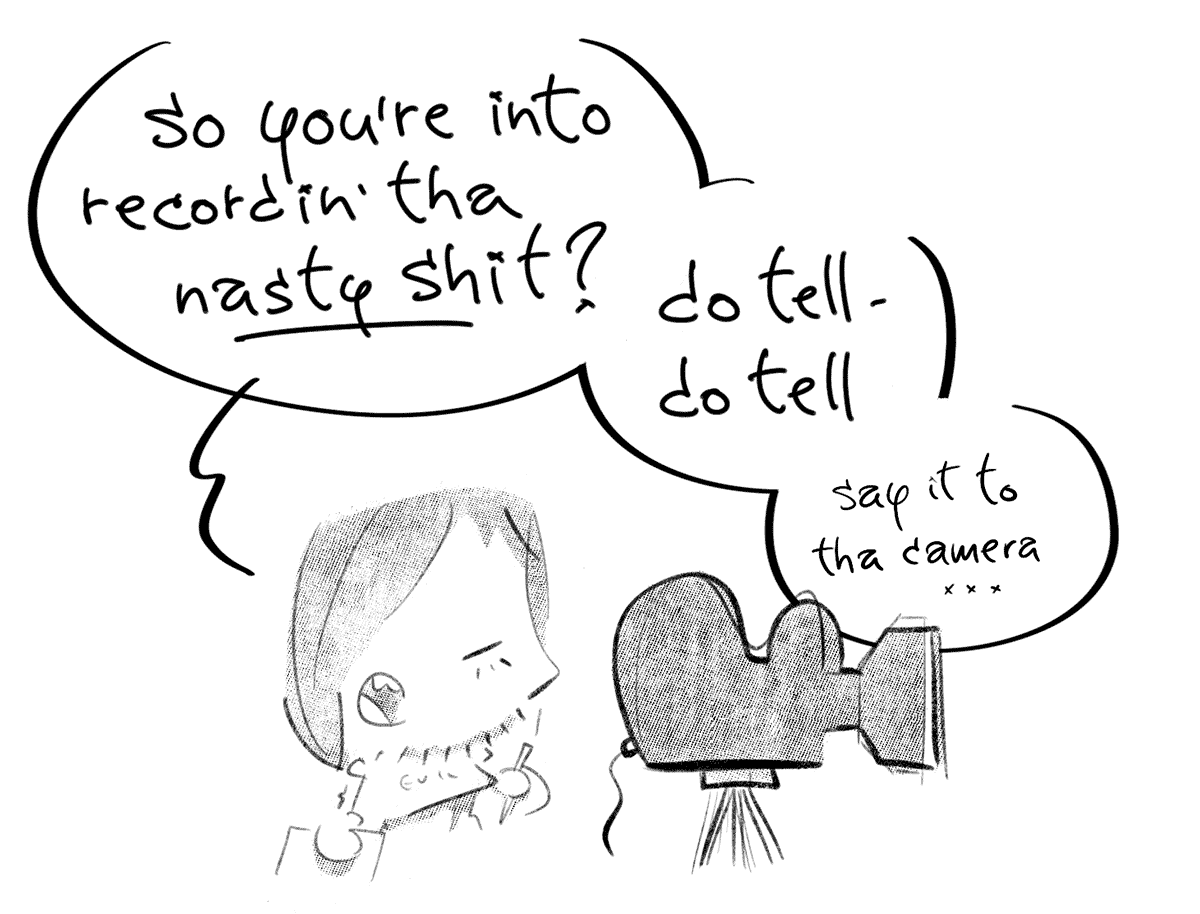 so you're into
recordin' tha
nasty shit?
do tell -
do tell
say it to
tha camera
...
EVIL